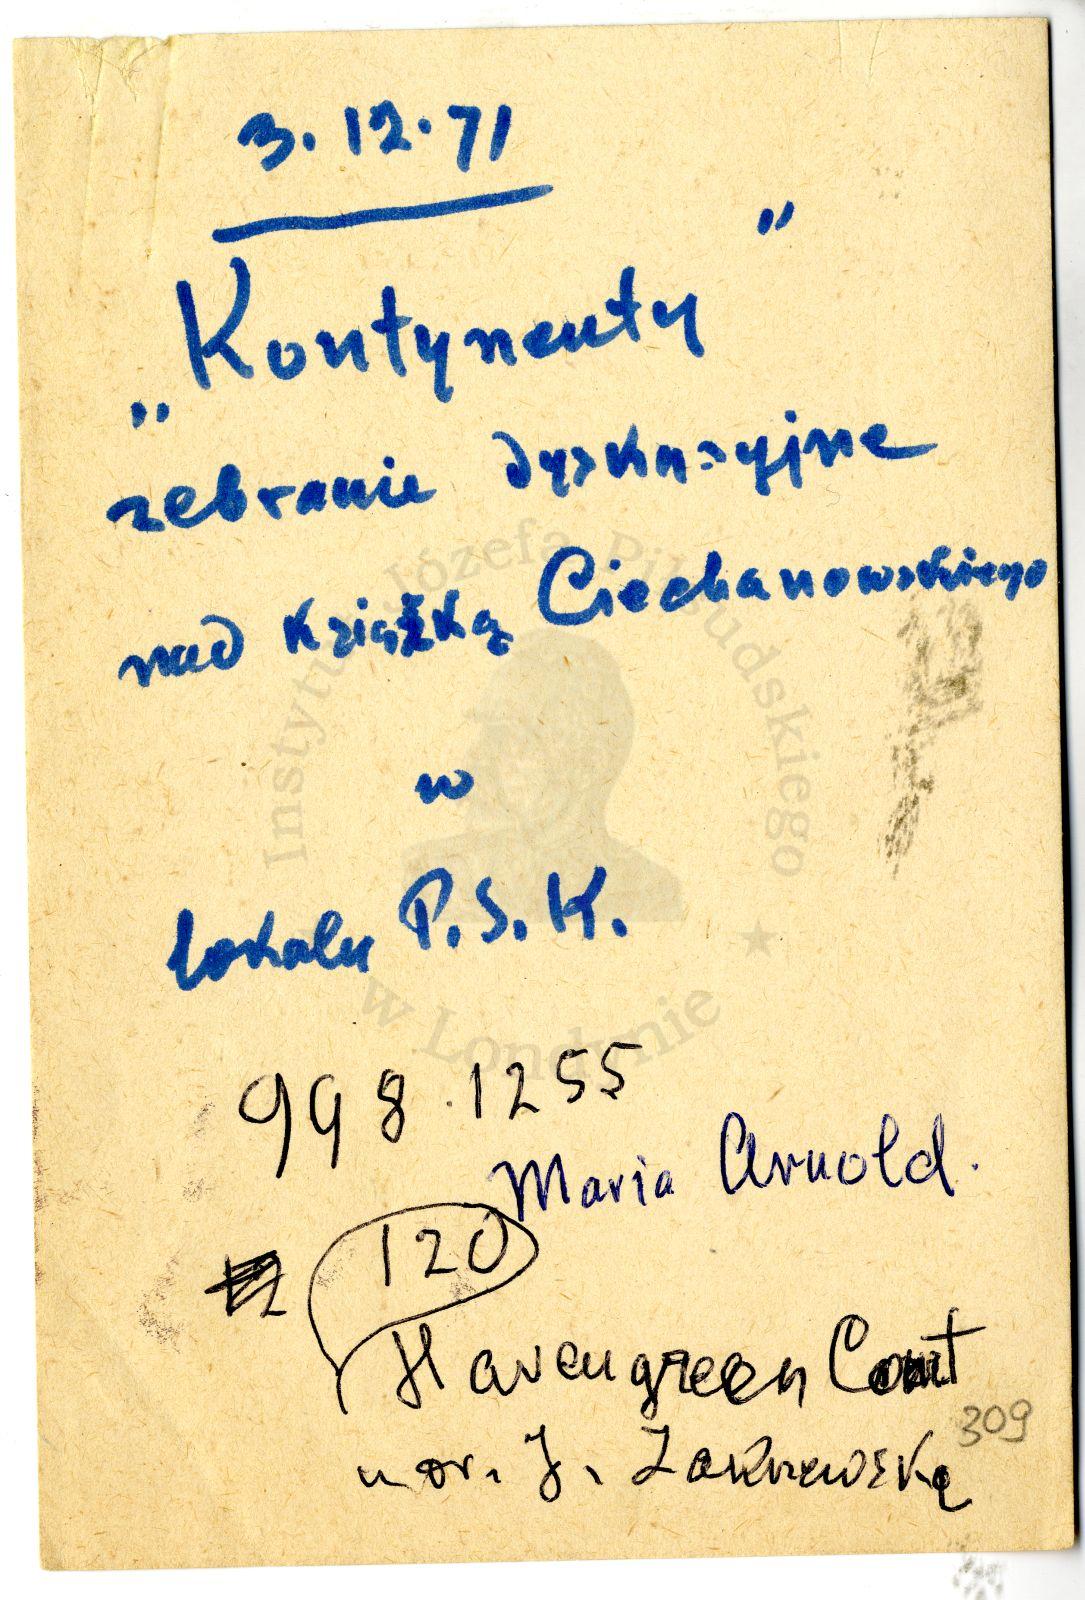 3. 12. 71
„Kontynenty"
zebranie dyskusyjne
nad książką Ciechanowskiego
w
lokalu P.S.K.
998.1255
Maria Arnold.
120
Havengreen Court
J. Zakrzewską
309
Instytut Józefa Piłsudskiego
w Londynie